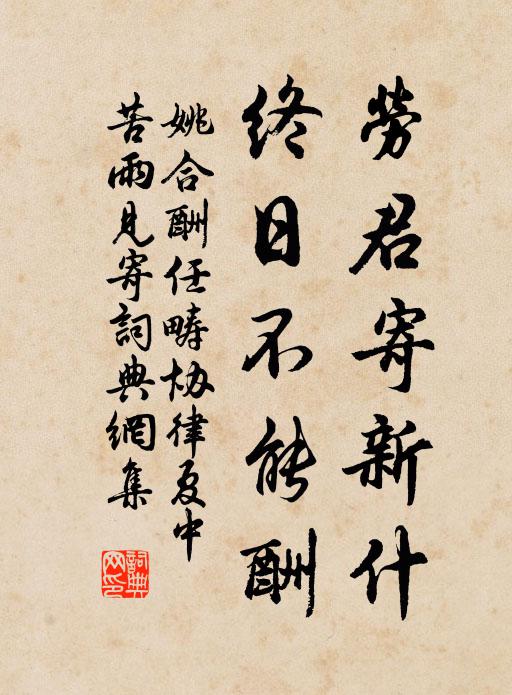 勞君寄新什
終日不能酬
姚合酬任畴协律夏中
苦雨見寄詞典網集
詞典网印